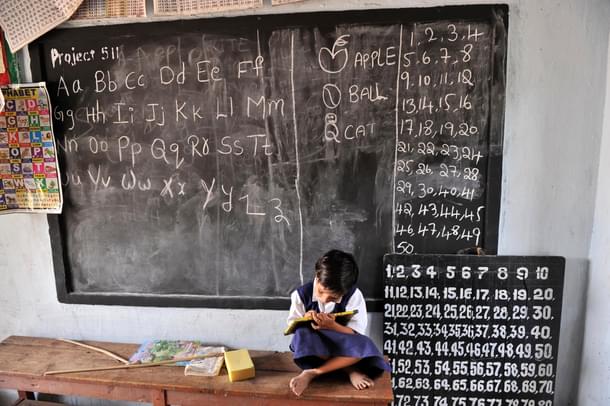 Project 511
Aa Bb Cc Dd Ee Ff
Gg Hh Ii Jj Kk Ll Mm
Nn Oo Pp Qq Rr Ss Tt
Uu Vv Ww Xx Yy Zz
APPLE
BALL
CAT
1, 2, 3, 4
5, 6, 7, 8,
9, 10, 11, 12
13, 14, 15, 16
17, 18, 19, 20.
21, 22, 23, 24
25, 26, 27, 28
29, 30, 40, 41
42, 43, 44, 45
46, 47, 48, 49
50.
1 2 3 4 5 6 7 8 9 10
11.12.13.14.15.16.17.18.19.20.
21.22.23.24.25.26.27.28.29.30
31.32.33.34.35.36.37.38.39.40
41.42.43.44.45.46.47.48.49.50
51.52.53.54.55.56.57.58.59.60
61.62.63.64.65.66.67.68.69.70